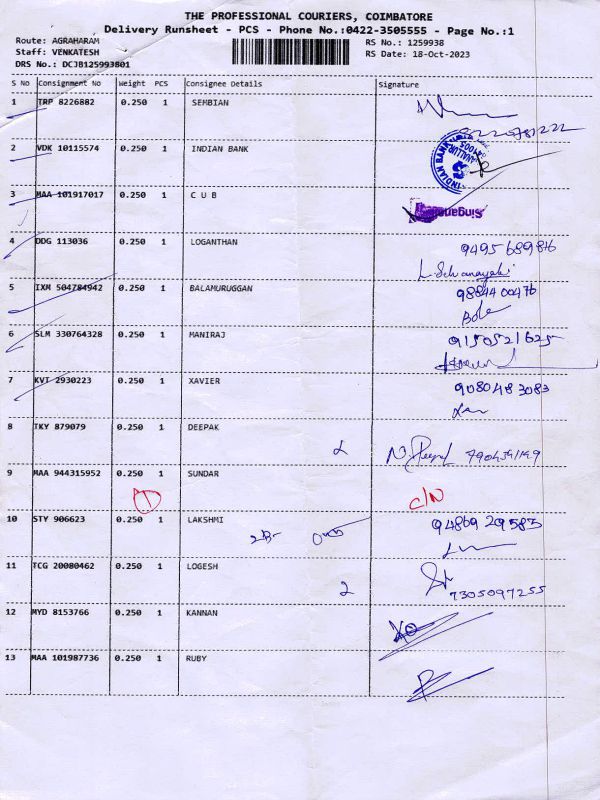 THE PROFESSIONAL COURIERS, COIMBATORE
Delivery Runsheet - PCS - Phone No.:0422-3505555 - Page No.:1
Route: AGRAHARAM RS No.: 1259938
Staff: VENKATESH RS Date: 18-Oct-2023
DRS No.: DCJB125993801
S No Consignment No Weight PCS Consignee Details Signature
1 TRP 8226882 0.250 1 SEMBIAN
2 VDK 10115574 0.250 1 INDIAN BANK INDIAN BANK
3 MAA 101917017 0.250 1 C U B
4 DDG 113036 0.250 1 LOGANTHAN
5 IXM 504784942 0.250 1 BALAMURUGGAN 9884400476
6 SLM 330764328 0.250 1 MANIRAJ 9150521625
7 KVT 2930223 0.250 1 XAVIER 9080483083
8 TKY 879079 0.250 1 DEEPAK
9 MAA 944315952 0.250 1 SUNDAR
1 C/N
10 STY 906623 0.250 1 LAKSHMI 9486929583
11 TCG 20080462 0.250 1 LOGESH
7305097255
12 MYD 8153766 0.250 1 KANNAN
13 MAA 101987736 0.250 1 RUBY